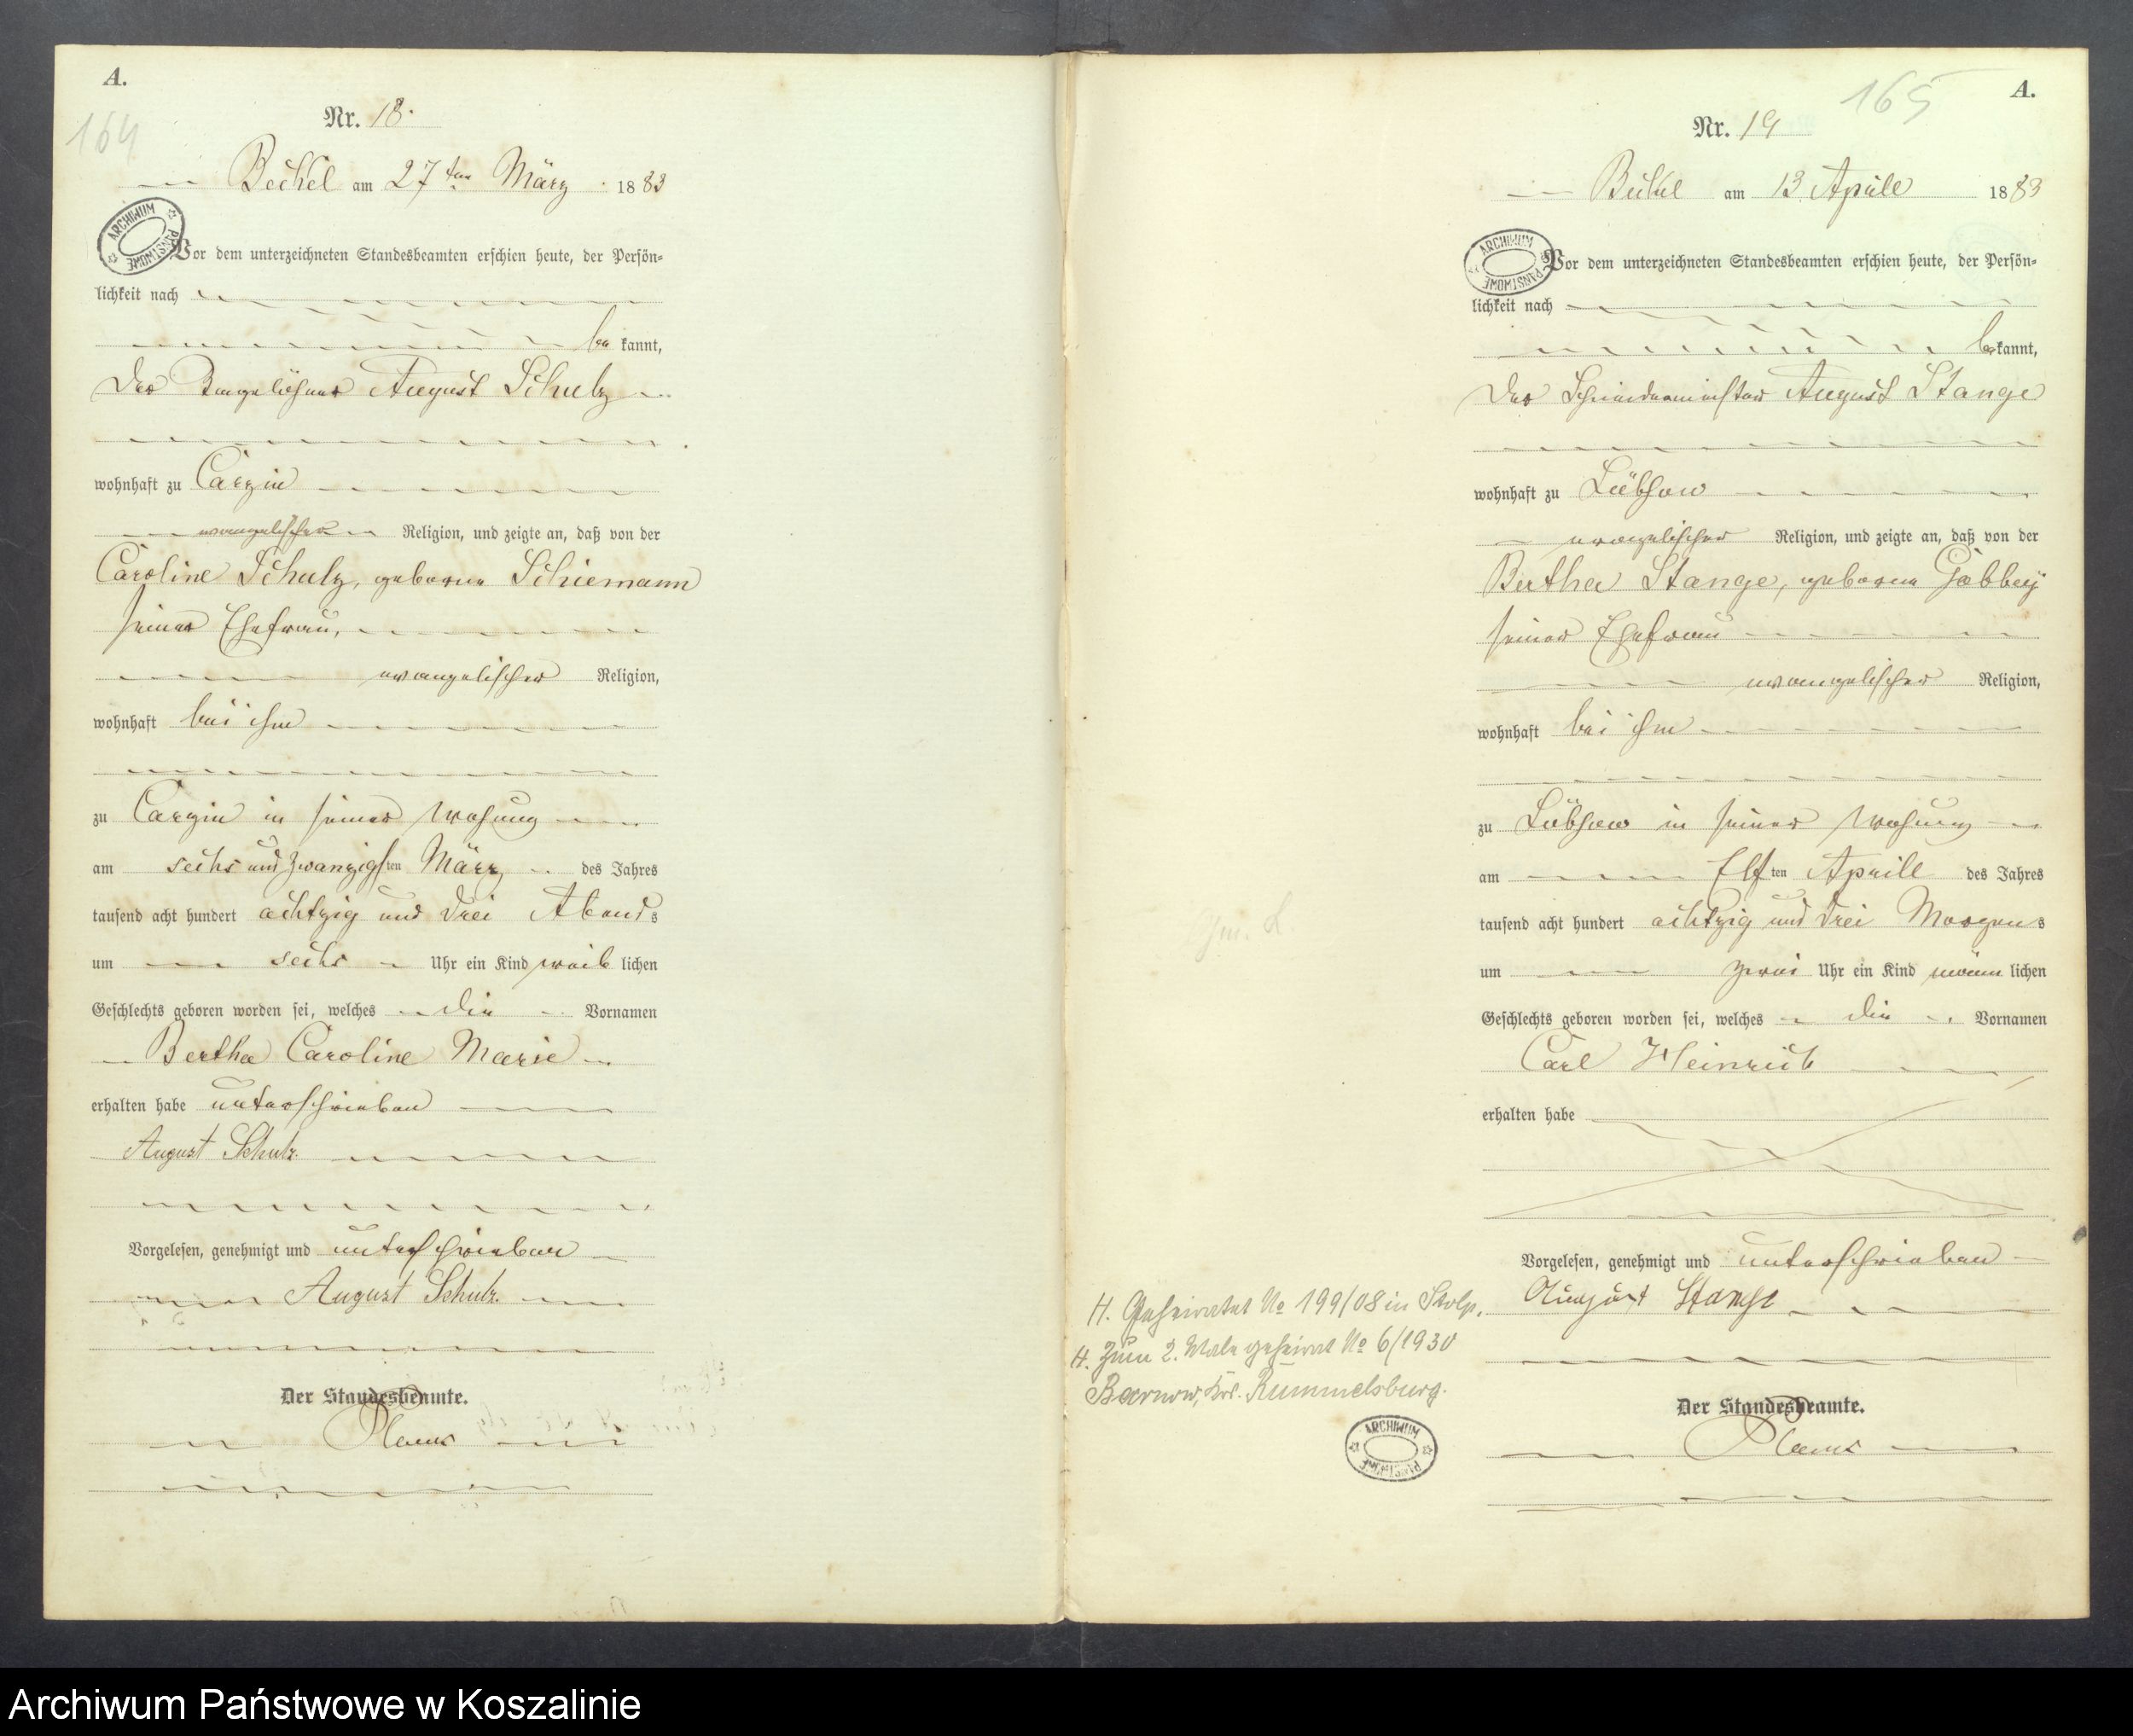 A.
164
Nr. 18.
Beckel am 27ten März 1883
ARCHIWUM PAŃSTWOWE
Vor dem unterzeichneten Standesbeamten erschien heute, der Persön-
lichkeit nach
be kannt,
der August Schulz
wohnhaft zu Carzin
evangelischer Religion, und zeigte an, daß von der
Caroline Schulz, geborne Schiemann
seiner Ehefrau,
evangelischer Religion,
wohnhaft bei ihm
zu Carzin in seiner Wohung
am sechs und zwanzigsten März des Jahres
tausend acht hundert achtzig und drei Abends
um sechs Uhr ein Kind weib lichen
Geschlechts geboren worden sei, welches die Vornamen
Bertha Caroline Marie
erhalten habe unterschrieben
August Schulz.
Vorgelesen, genehmigt und unterschrieben
August Schulz.
Der Standesbeamte.
A.
165
Nr. 19
Beckel am 13. Aprill 1883
ARCHIWUM PAŃSTWOWE
Vor dem unterzeichneten Standesbeamten erschien heute, der Persön-
lichkeit nach
be kannt,
der Schneidermeister August Stange
wohnhaft zu Lübzow
evangelischer Religion, und zeigte an, daß von der
Bertha Stange, geborne Gabbey
seiner Ehefrau
evangelischer Religion,
wohnhaft bei ihm
zu Lübzow in seiner Wohung
am Elften Aprill des Jahres
tausend acht hundert achtzig und drei Morgens
um zwei Uhr ein Kind männ lichen
Geschlechts geboren worden sei, welches die Vornamen
Carl Heinrich
erhalten habe
Vorgelesen, genehmigt und unterschrieben
August Stange
Der Standesbeamte.
H. Geheiratet No 199/08 in Stolp.
H. Zum 2. Male geheirat No 6/1930
Barnow, Krs. Rummelsburg.
ARCHIWUM PAŃSTWOWE
Archiwum Państwowe w Koszalinie